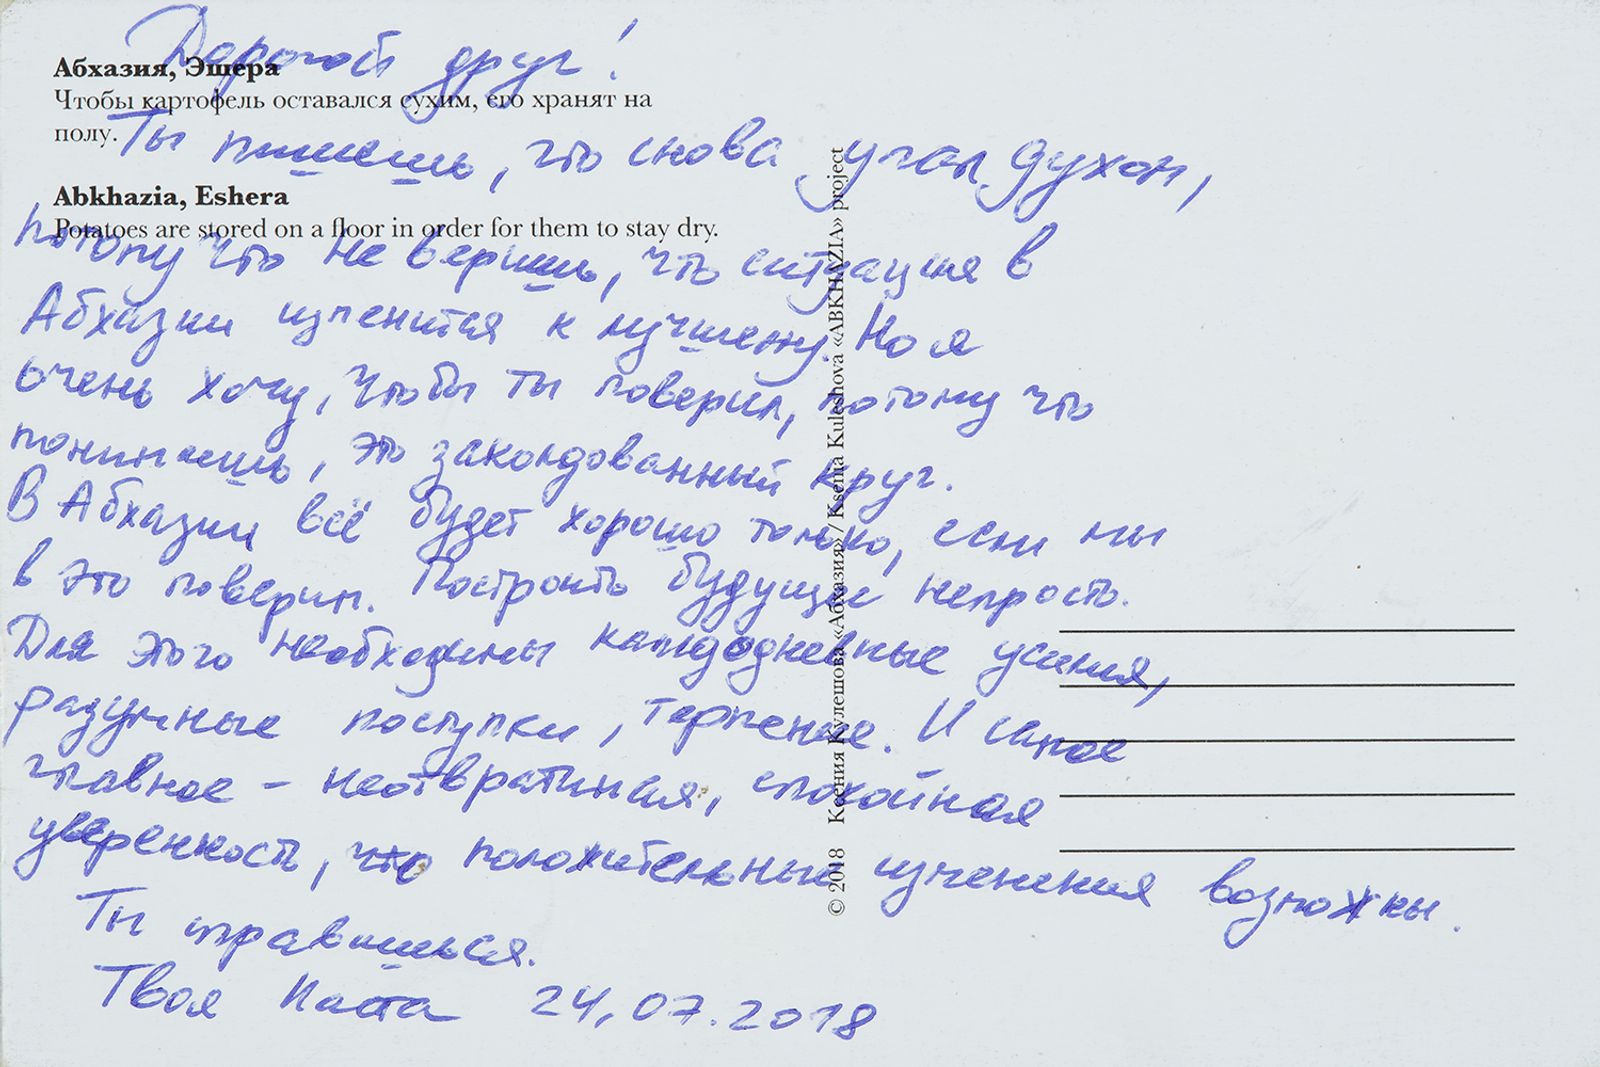 Дорогой друг!
Абхазия, Эшера
Чтобы картофель оставался сухим, его хранят на
полу.
Ты пишешь, что снова упал духом,
Abkhazia, Eshera
Potatoes are stored on a floor in order for them to stay dry.
потому что не веришь, что ситуация в
Абхазии изменится к лучшему. Но я
очень хочу, чтобы ты поверил, потому что
понимаешь, это заколдованный круг.
В Абхазии всё будет хорошо только, если мы
в это поверим. Построить будущее непросто.
Для этого необходимы каждодневные усилия,
разумные поступки, терпение. И самое
главное - неотвратимая, спокойная
уверенность, что положительные изменения возможны.
Ты справишься.
Твоя Наста 24.07.2018
© 2018 Ксения Кулешова «Абхазия» / Ksenia Kuleshova «ABKHAZIA» project